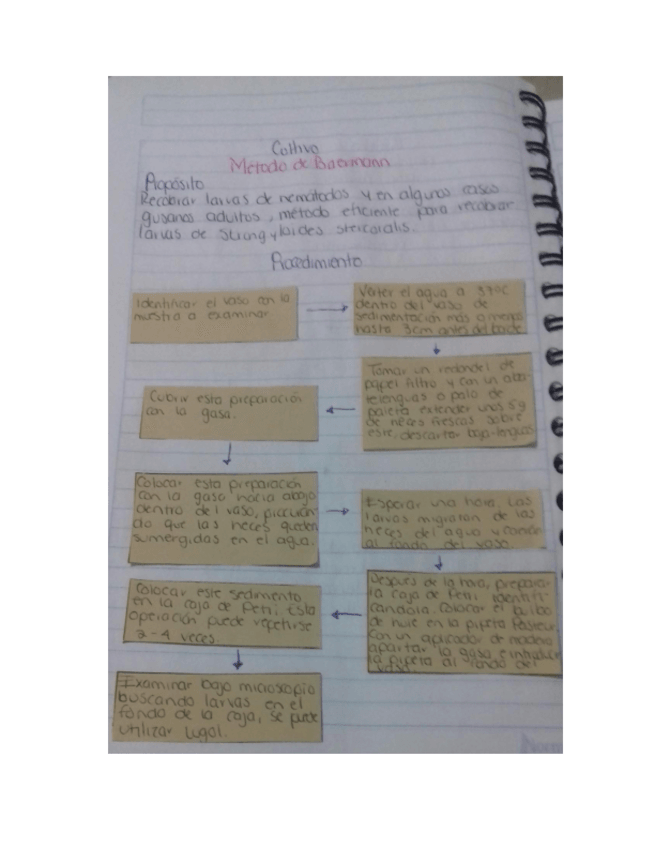 Cultivo
Método de Baermann
Propósito
Recobrar larvas de nemátodos y en algunos casos
gusanos adultos, método eficiente para recobrar
larvas de Strongyloides stercoralis.
Procedimiento
Identificar el vaso con la
muestra a examinar
Verter el agua a 37°C
dentro del vaso de
sedimentación más o menos
hasta 3cm antes del borde
Tomar un redondel de
papel filtro y con un aba-
telenguas o palo de
paleta extender unos 5g
de heces frescas sobre
este, descartar baja-lenguas
Cubrir esta preparación
con la gasa.
Colocar esta preparación
con la gasa hacia abajo
dentro del vaso, procuran
do que las heces queden
sumergidas en el agua.
Esperar una hora. Las
larvas migraran de las
heces del agua y caerán
al fondo del vaso.
Después de la hora, preparar
la caja de Petri, identifi-
candola. Colocar el bulbo
de hule en la pipeta Pasteur
con un aplicador de madera
apartar la gasa e introducir
la pipeta al fondo del
vaso.
Colocar este sedimento
en la caja de Petri. Esta
operación puede repetirse
2-4 veces.
Examinar bajo microscopio
buscando larvas en el
fondo de la caja, se puede
utilizar lugol.